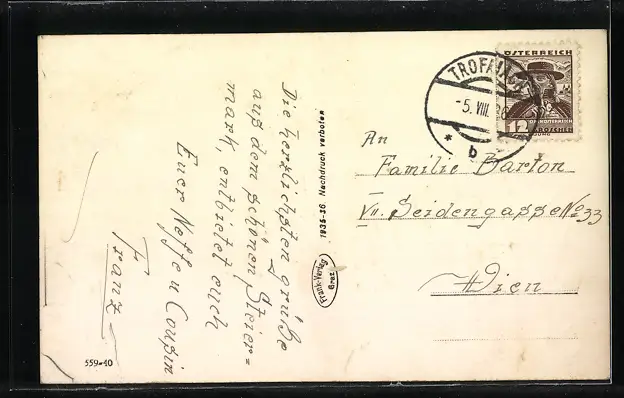 Die herzlichsten Grüße
aus dem schönen Steier=
mark, entbietet euch
Euer Neffen Cousin
Franz
559-40
1935-36 Nachdruck verboten
Frank-Verlag
Graz
An
Familie Barton
VII. Seidengasse No 33
Wien
TROFAIACH
-5. VIII.
* b
ÖSTERREICH
12 GROSCHEN